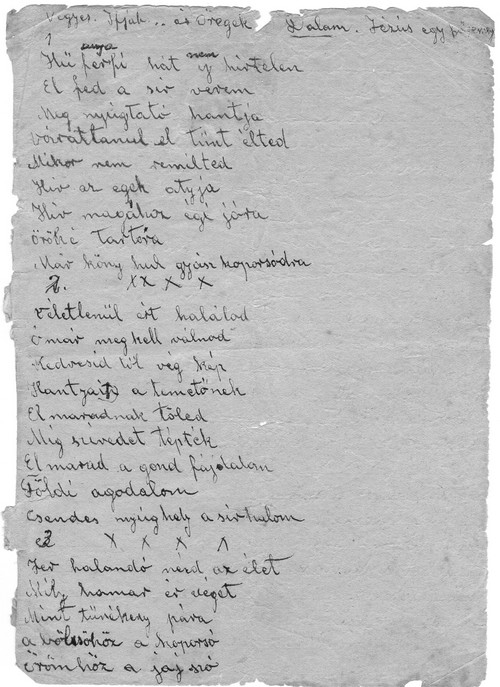 Vegyes. Ifjak.. és Öregek Dalam. Jézús egy
1
anya nem
Hü férfi hát ij hirtelen
El fed a sir verem
Meg nyúgtató hantja
Váratlanul el tünt élted
Mikor nem remilted
Hiv az egek atyja
Hiv magához égi jóra
örökké tartóra
Már köny hul gyász koporsódra
2. x x x x
Véletlenül ért halálod
Ó már meg kell válnod
Kedvesid től vég kép
Hantjai a temetőnek
El maradnak tőled
Míg szivedet tépték
El marad a gond fájdalom
Földi agodalom
Csendes nyúghely a sirhalom
3 x x x x
Jer halandó nézd az élet
Mily hamar ér véget
Mint tünékeny pára
a bölcsőhöz a koporsó
örömhöz a jaj szó